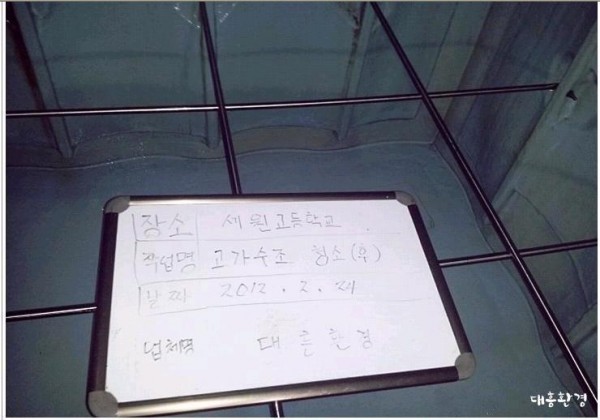 장소 세원고등학교
작업명 고가수조 청소(후)
날짜 2012.2.24
업체명 대흥환경
대흥환경